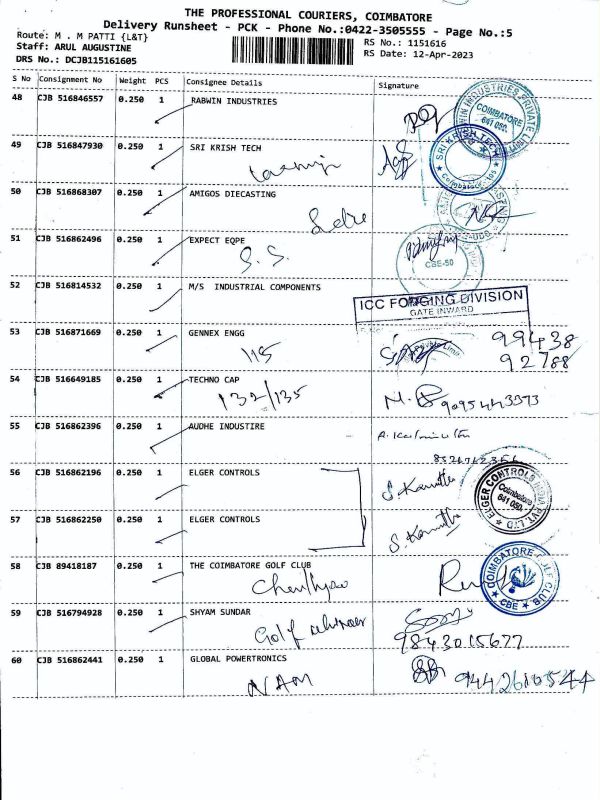 THE PROFESSIONAL COURIERS, COIMBATORE
Delivery Runsheet - PCK - Phone No.:0422-3505555 - Page No.:5
Route: M . M PATTI {L&T}
RS No.: 1151616
Staff: ARUL AUGUSTINE
RS Date: 12-Apr-2023
DRS No.: DCJB115161605
S No Consignment No Weight PCS Consignee Details Signature
48 CJB 516846557 0.250 1 RABWIN INDUSTRIES
COIMBATORE
641 050.
49 CJB 516847930 0.250 1 SRI KRISH TECH
SRI KRISH TECH
50 CJB 516868307 0.250 1 AMIGOS DIECASTING
51 CJB 516862496 0.250 1 EXPECT EQPE
S. S.
CBE-50
52 CJB 516814532 0.250 1 M/S INDUSTRIAL COMPONENTS
ICC FORGING DIVISION
GATE INWARD
53 CJB 516871669 0.250 1 GENNEX ENGG
115
99438
92788
54 CJB 516649185 0.250 1 TECHNO CAP
132/135
55 CJB 516862396 0.250 1 AUDHE INDUSTIRE
56 CJB 516862196 0.250 1 ELGER CONTROLS
ELGER CONTROLS INDIA PVT. LTD
Coimbatore
641 050.
57 CJB 516862250 0.250 1 ELGER CONTROLS
58 CJB 89418187 0.250 1 THE COIMBATORE GOLF CLUB
COIMBATORE GOLF CLUB
CBE
59 CJB 516794928 0.250 1 SHYAM SUNDAR
Golf
9843015677
60 CJB 516862441 0.250 1 GLOBAL POWERTRONICS
9442610544